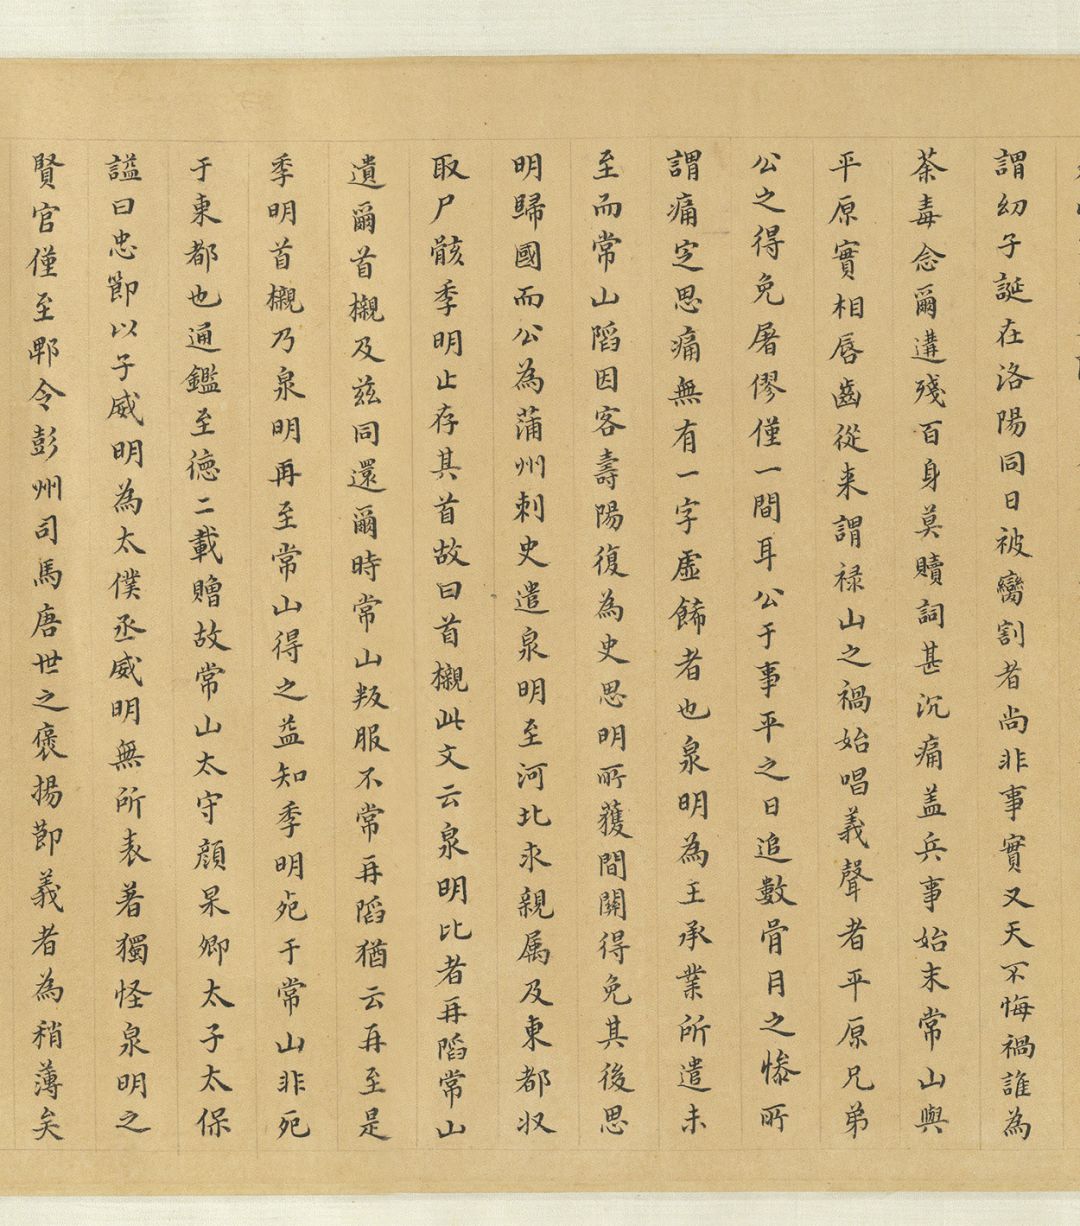 謂幼子誕在洛陽同日被臠割者尚非事實又天不悔禍誰為
荼毒念爾遘殘百身莫贖詞甚沉痛盖兵事始末常山與
平原實相唇齒從来謂祿山之禍始唱義聲者平原兄弟
公之得免屠僇僅一間耳公于事平之日追數骨月之慘所
謂痛定思痛無有一字虛餙者也泉明為王承業所遣未
至而常山䧟因客壽陽復為史思明所獲間關得免其後思
明歸國而公為蒲州刺史遣泉明至河北求親属及東都収
取尸骸季明止存其首故曰首櫬此文云泉明比者再䧟常山
遺爾首櫬及兹同還爾時常山叛服不常再䧟猶云再至是
季明首櫬乃泉明再至常山得之益知季明死于常山非死
于東都也通鑑至德二載贈故常山太守顔杲卿太子太保
謚曰忠節以子威明為太僕丞威明無所表著獨怪泉明之
賢官僅至郫令彭州司馬唐世之褒揚節義者為稍薄矣